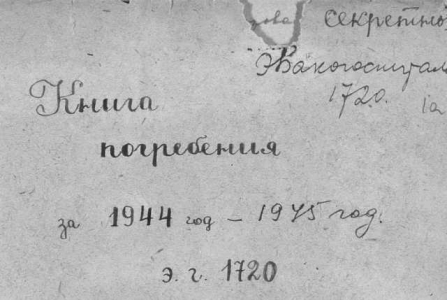 Секретно
Эвакогоспитал
1720.
Книга
погребения
за 1944 год – 1945 год.
э. г. 1720